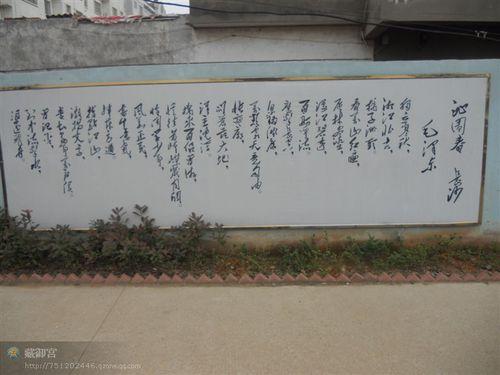 沁园春 长沙
毛泽东
独立寒秋
湘江北去
橘子洲头
看万山红遍
层林尽染
漫江碧透
百舸争流
鹰击长空
鱼翔浅底
万类霜天竞自由
怅寥廓
问苍茫大地
谁主沉浮
携来百侣曾游
忆往昔峥嵘岁月稠
恰同学少年
风华正茂
书生意气
挥斥方遒
指点江山
激扬文字
粪土当年万户侯
曾记否
到中流击水
浪遏飞舟
藏御宫
http://751202446.qzone.qq.com